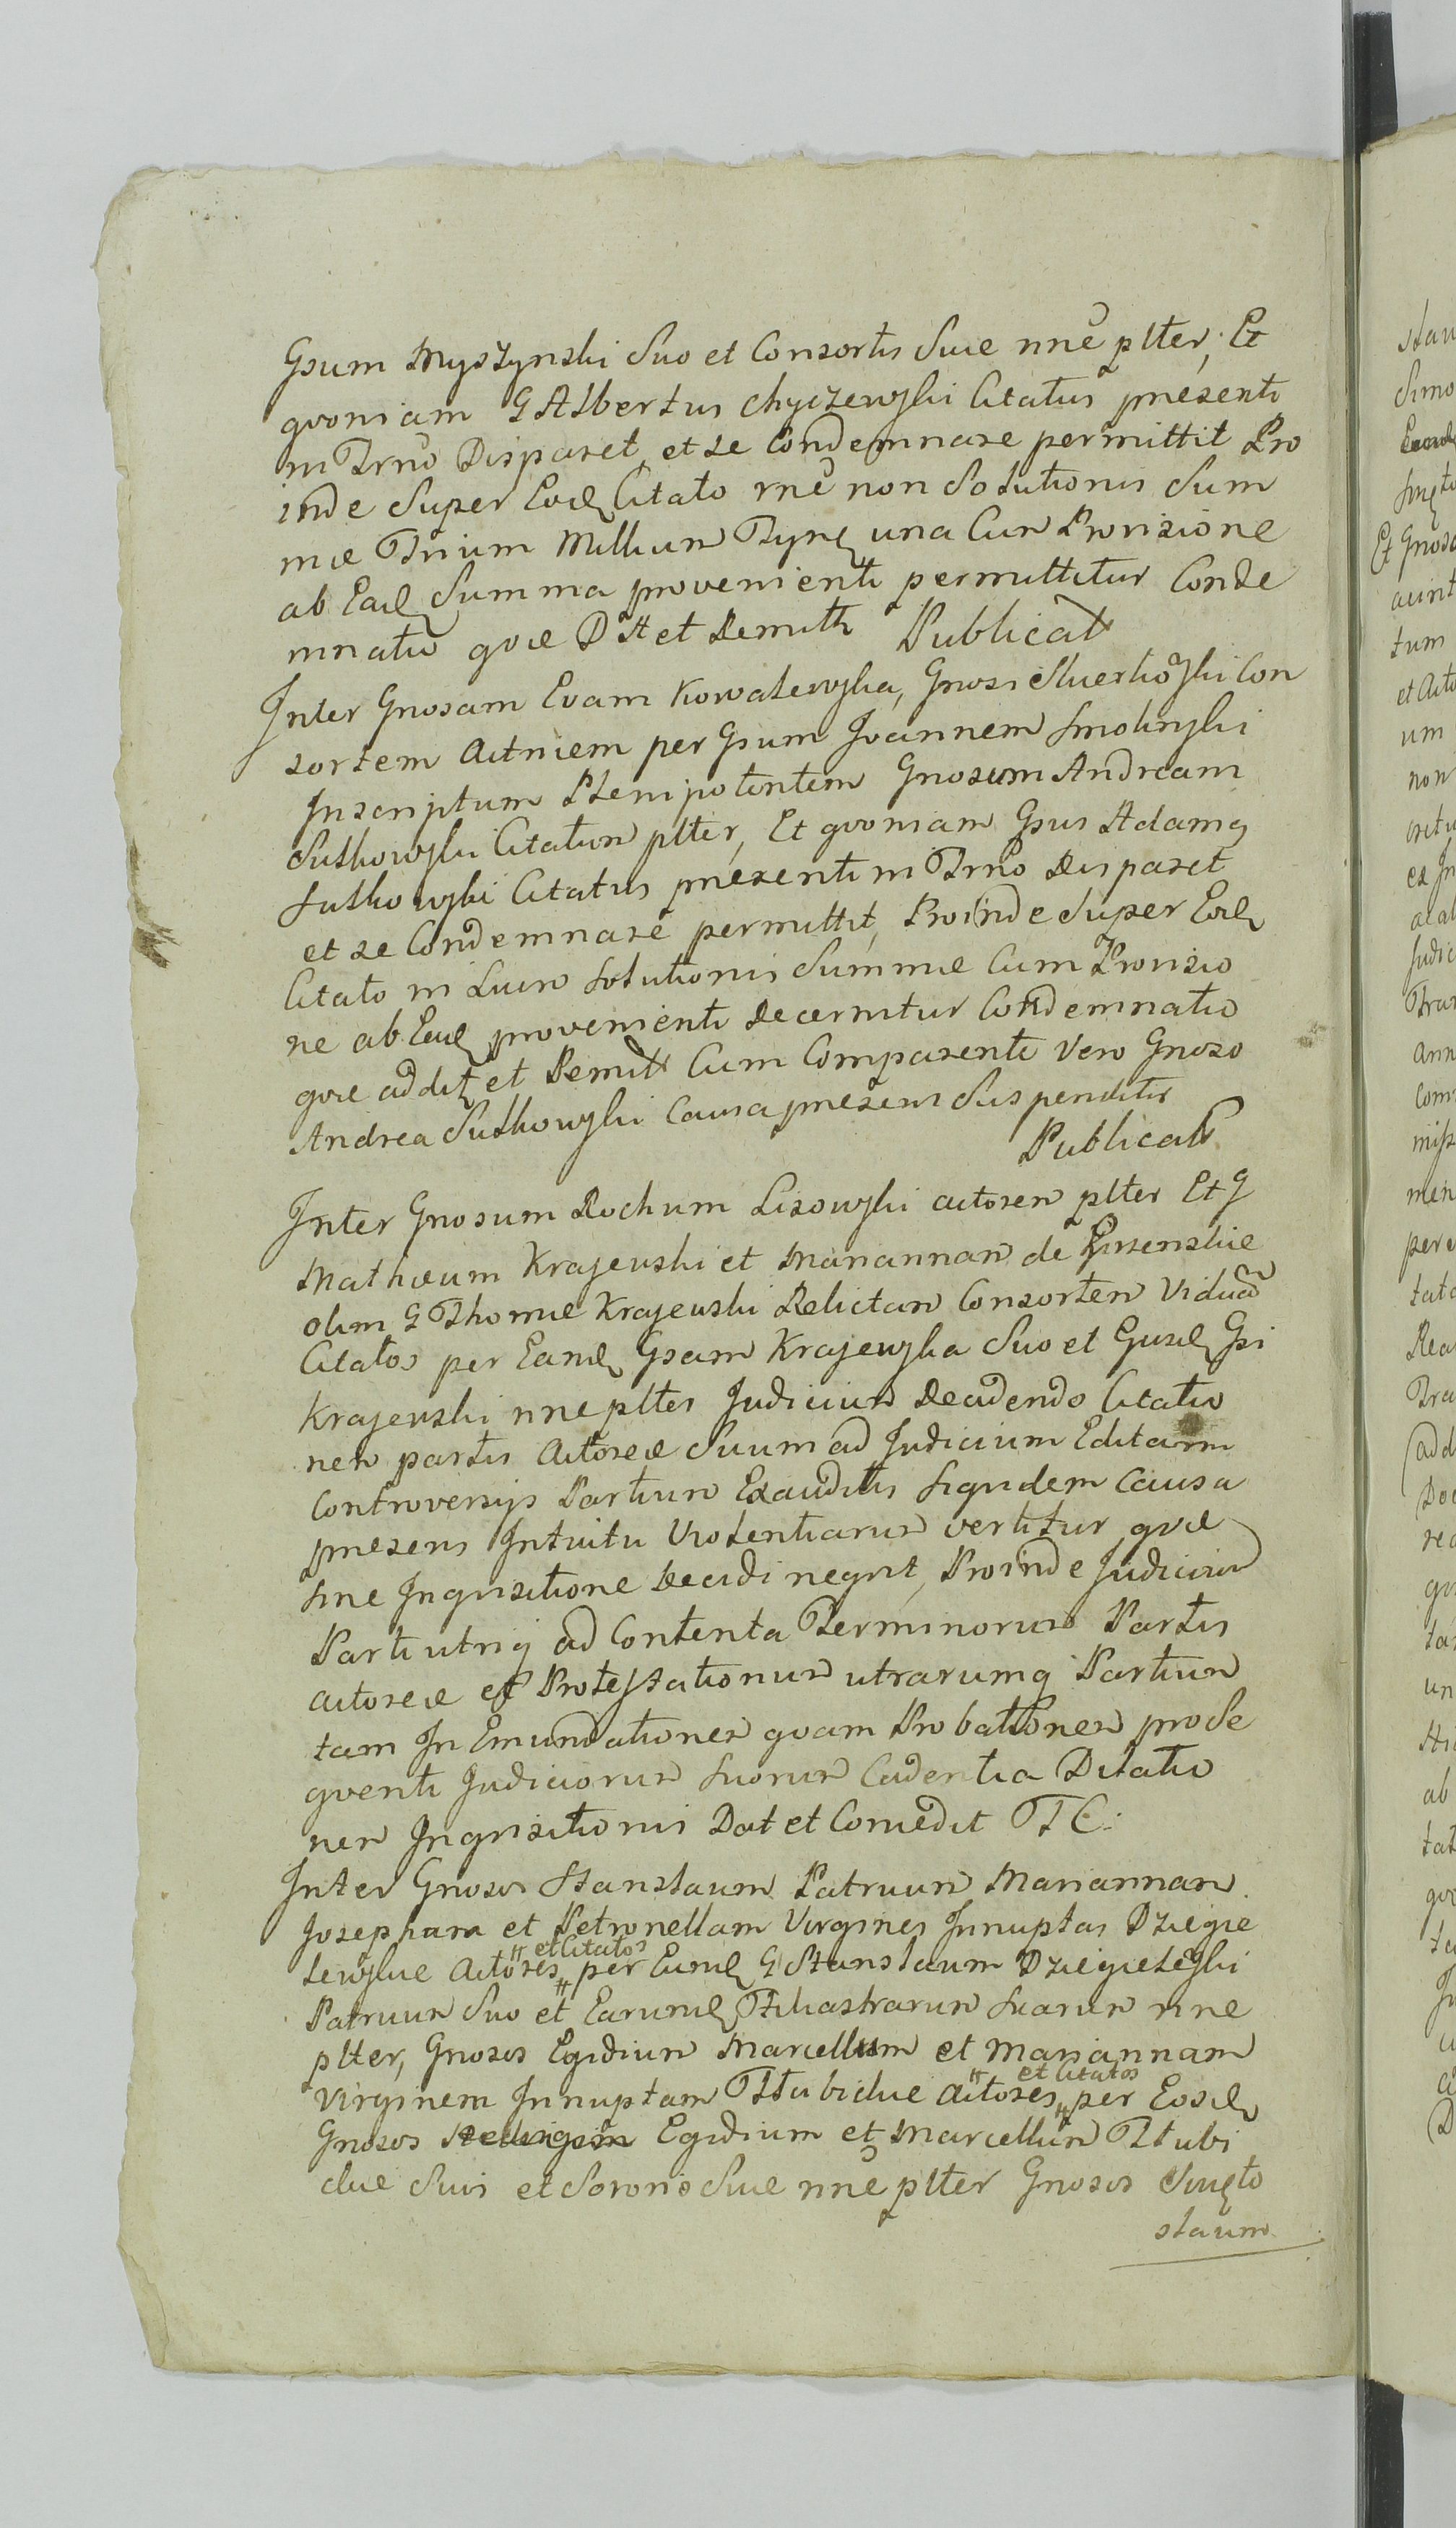 Gsum Myszynski Suo et Consortis Suæ nnē plter, Et
qvoniam G Albertus Chyczewski Citatus præsenti
in Trno Disparet et se Condemnare permittit Pro
inde Super Eod Citato rnē non Solutionis Sum
mæ Trium Millium Tynf una Cum Provisione
ab Ead Summa provenienti permittitur Conde
mnatio qvæ D A et Remitt Publicat
Inter Gnosam Evam Kowalewska, Gnosi Con
sortem Actricem per Gsum Joannem Smolinski
Inscriptum Plenipotentem Gnosum Andream
Sutkowski Citatum plter, Et qvoniam Gsus Adamq
Sutkowski Citatus præsenti in Trno Disparet
et se Condemnare permittit, Proinde Super Eod
Citato in Luen Solutionis Summæ Cum Provisio
ne ab Ead provenienti decernitur Condemnatio
qvæ addit et Remitt Cum Comparenti Vero Gnoso
Andrea Sutkowski Causa præsens Suspenditur
Publicat
Inter Gnosum Rochum Lisowski actorem plter Et G
Mathæum Krajewski et Mariannam de
olim G Thomæ Krajewski Relictam Consortem Viduā
Citatos per Eand Gsam Krajewska Suo et Gusd Gsi
Krajewski nne plter Judicium Decidendo Citatio
nem partis Actoreæ Suum ad Judicium Editam
Controversijs Partium Exauditis Siqvidem Causa
præsens Intuitu Violentiarum vertitur qvæ
sine Inqvisitione Decidi neqvit, Proinde Judicium
Parti utriq ad Contenta Terminorum Partis
actoreæ et Protestationum utrarumq Partium
tam In Emundationem qvam Probationem pro Se
qventi Judiciorum Suorum Cadentia Dilatio
nem Inqvisitionis Dat et Concedit T C:
Inter Gnosos Stanslaum Patruum Mariannam
Josepham et Petronellam Virgines Innuptas Dziegie
lewskie Actores et Citatos per Eund G Stanslaum Dziegielewski
Patruum Suo et Earund Filiastrarum Suarum nne
plter, Gnosos Egidium Marcellum et Mariannam
Virginem Innuptam Ttubickie actores et Citatos per Eosd
Gnosos Egidium et Marcellum Ttubi
ckie Suis et Sororis Suæ nnē plter Gnosos Swięto
slaum